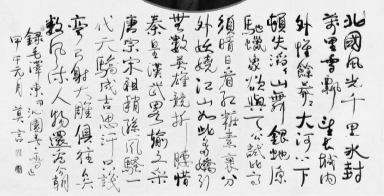 北國風光千里冰封
萬里雪飄望長城内
外惟餘莽莽大河上下
頓失滔滔山舞銀蛇原
馳蠟象欲與天公試比高
須晴日看紅裝素裹分
外妖嬈江山如此多嬌引
無數英雄競折腰惜
秦皇漢武畧輸文采
唐宗宋祖稍遜風騷一
代天驕成吉思汗只識
彎弓射大雕俱往矣
數風流人物還看今朝
錄毛澤東詞沁園春雪
甲午元月 莫言